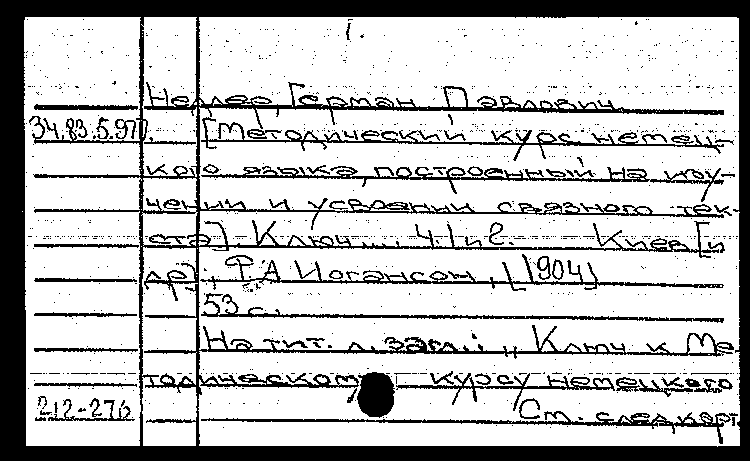 1.
Неллер, Герман Павлович.
34.83.5.977. [Методический курс немец-
кого языка, построенный на изу-
чении и усвоении связного тек-
ста]. Ключ.... Ч. 1 и 2. Киев [и
др.], Ф.А Иогансон, [1904]
53 с.
На тит. л. загл.: „Ключ к Ме-
тодическому курсу немецкого
212-276 См. след. карт.